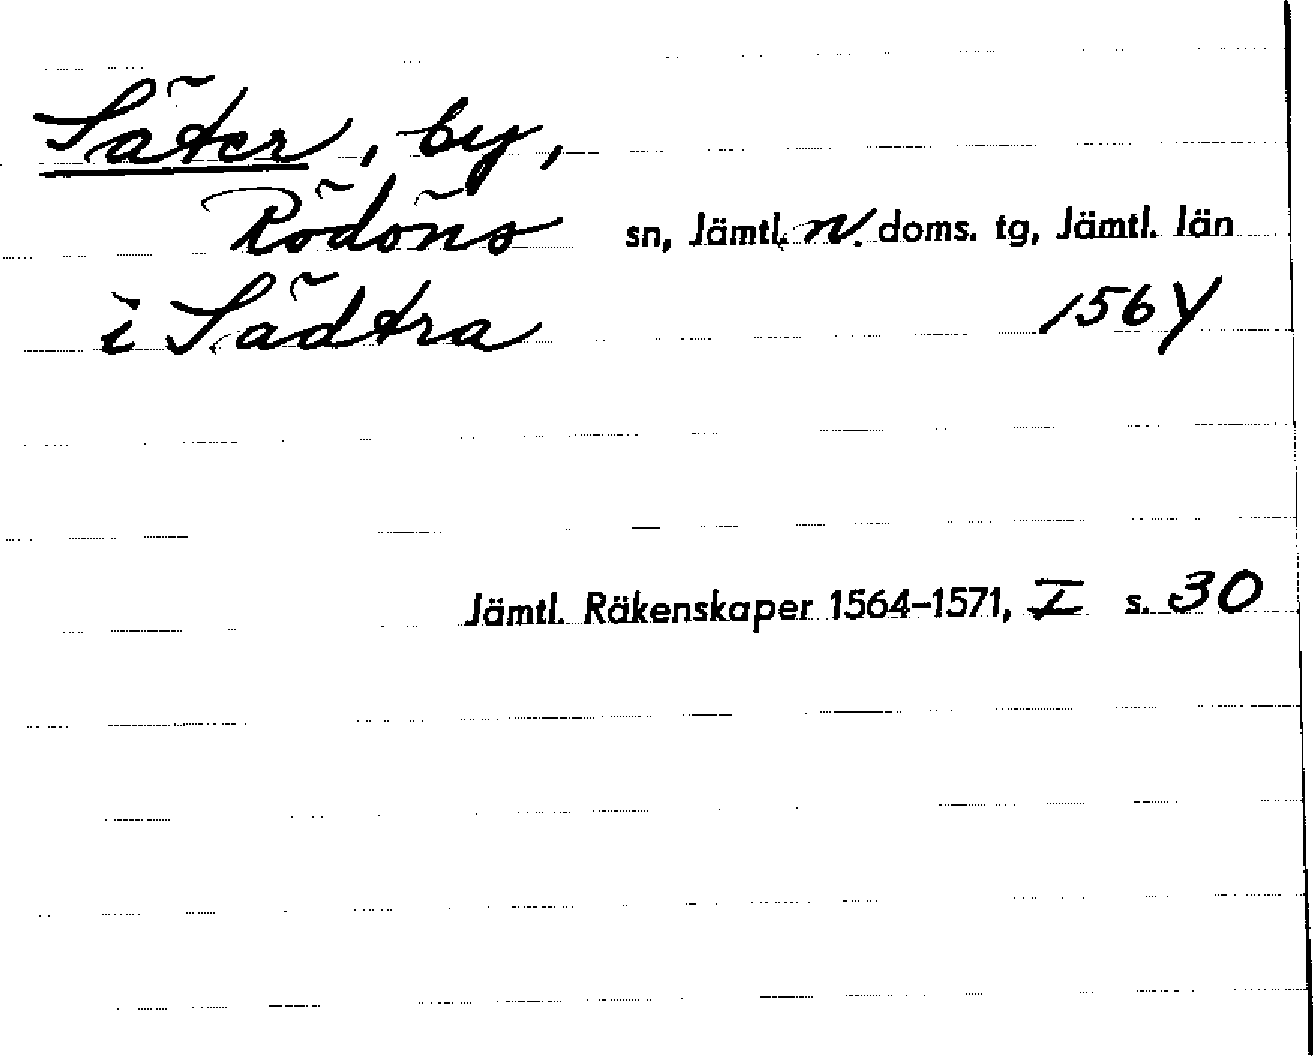 Säter, by,
Rödöns sn, Jämtl. n. doms. tg, Jämtl. län
i Sädtra 1564
Jämtl. Räkenskaper 1564-1571, I s. 30